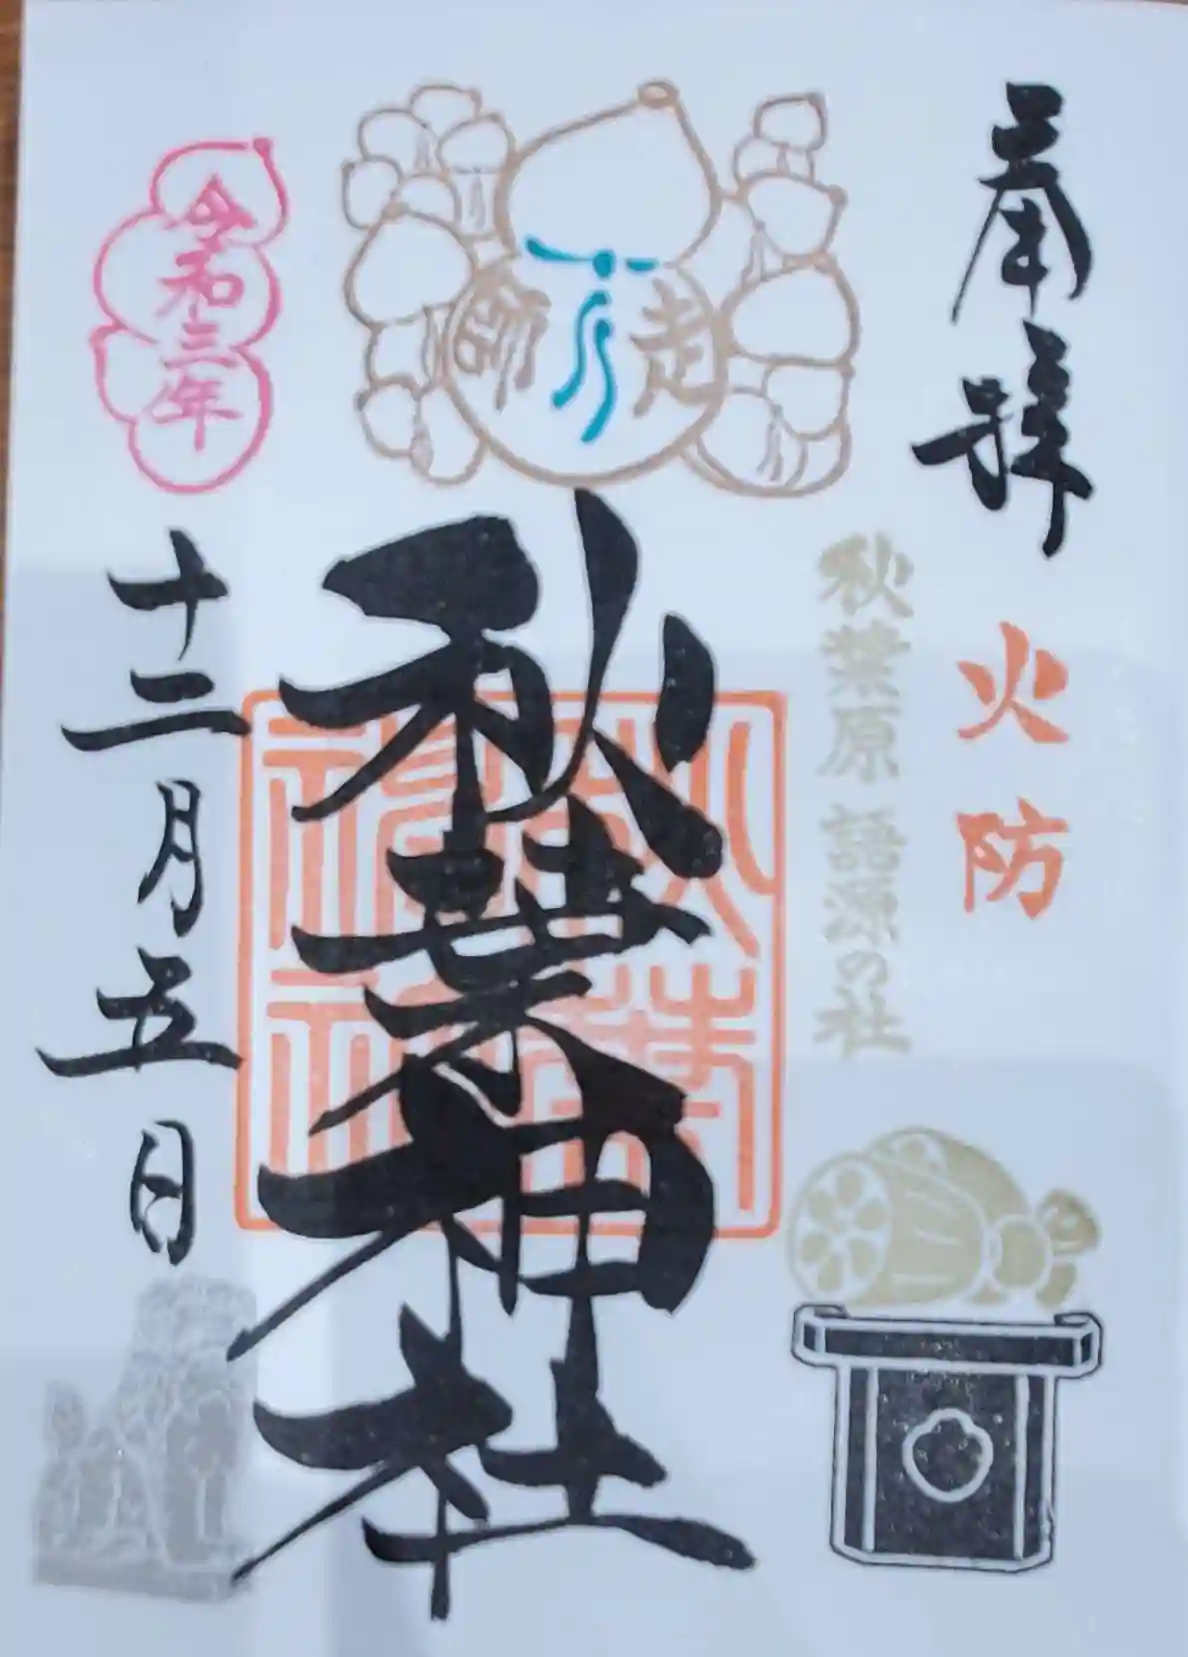 奉拝
火防
秋葉原 語源の社
走師
秋葉神社
秋葉神社
令和三年
十二月五日